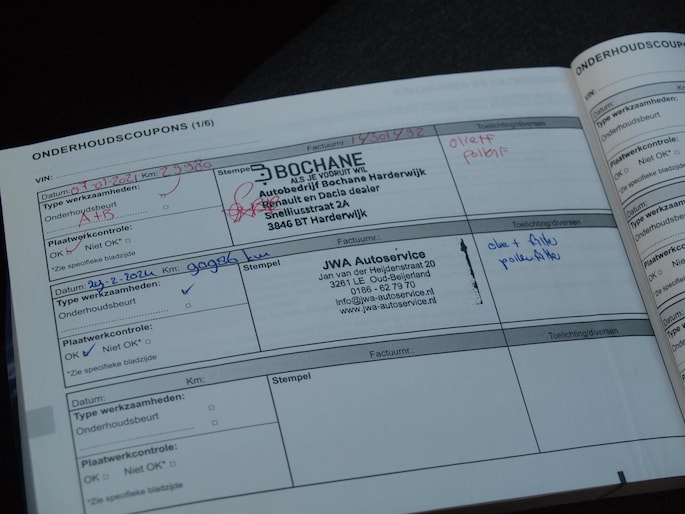 ONDERHOUDSCOUPONS (1/6)
VIN:
Datum: 07-01-2021 Km: 29980 Factuurnr. 14301492 Toelichting/diversen
Type werkzaamheden:
Onderhoudsbeurt
A+B
Plaatwerkcontrole:
OK Niet OK*
*Zie specifieke bladzijde
Stempel
BOCHANE
ALS JE VOORUIT WIL
Autobedrijf Bochane Harderwijk
Renault en Dacia dealer
Snelliusstraat 2A
3846 BT Harderwijk
Datum: 29-2-2024 Km: 90986 km Factuurnr.: Toelichting/diversen
Type werkzaamheden:
Onderhoudsbeurt
Plaatwerkcontrole:
OK Niet OK*
*Zie specifieke bladzijde
Stempel
JWA Autoservice
Jan van der Heijdenstraat 20
3261 LE Oud-Beijerland
0186 - 62 79 70
info@jwa-autoservice.nl
www.jwa-autoservice.nl
olie + filter
pollenfilter
Datum: Km: Factuurnr.: Toelichting/diversen
Type werkzaamheden:
Onderhoudsbeurt
Plaatwerkcontrole:
OK Niet OK*
*Zie specifieke bladzijde
Stempel
ONDERHOUDSCOUPO
VIN:
Datum: Km
Type werkzaamheden:
Onderhoudsbeurt
Plaatwerkcontrole:
OK Niet OK*
*Zie specifieke bladzijde
Datum:
Type werkzaamh
Onderhoudsbeurt
Plaatwerkcontro
OK Niet OK
*Zie specifieke blad
Datum:
Type we
Onderho
Plaatw
OK
*Zie s